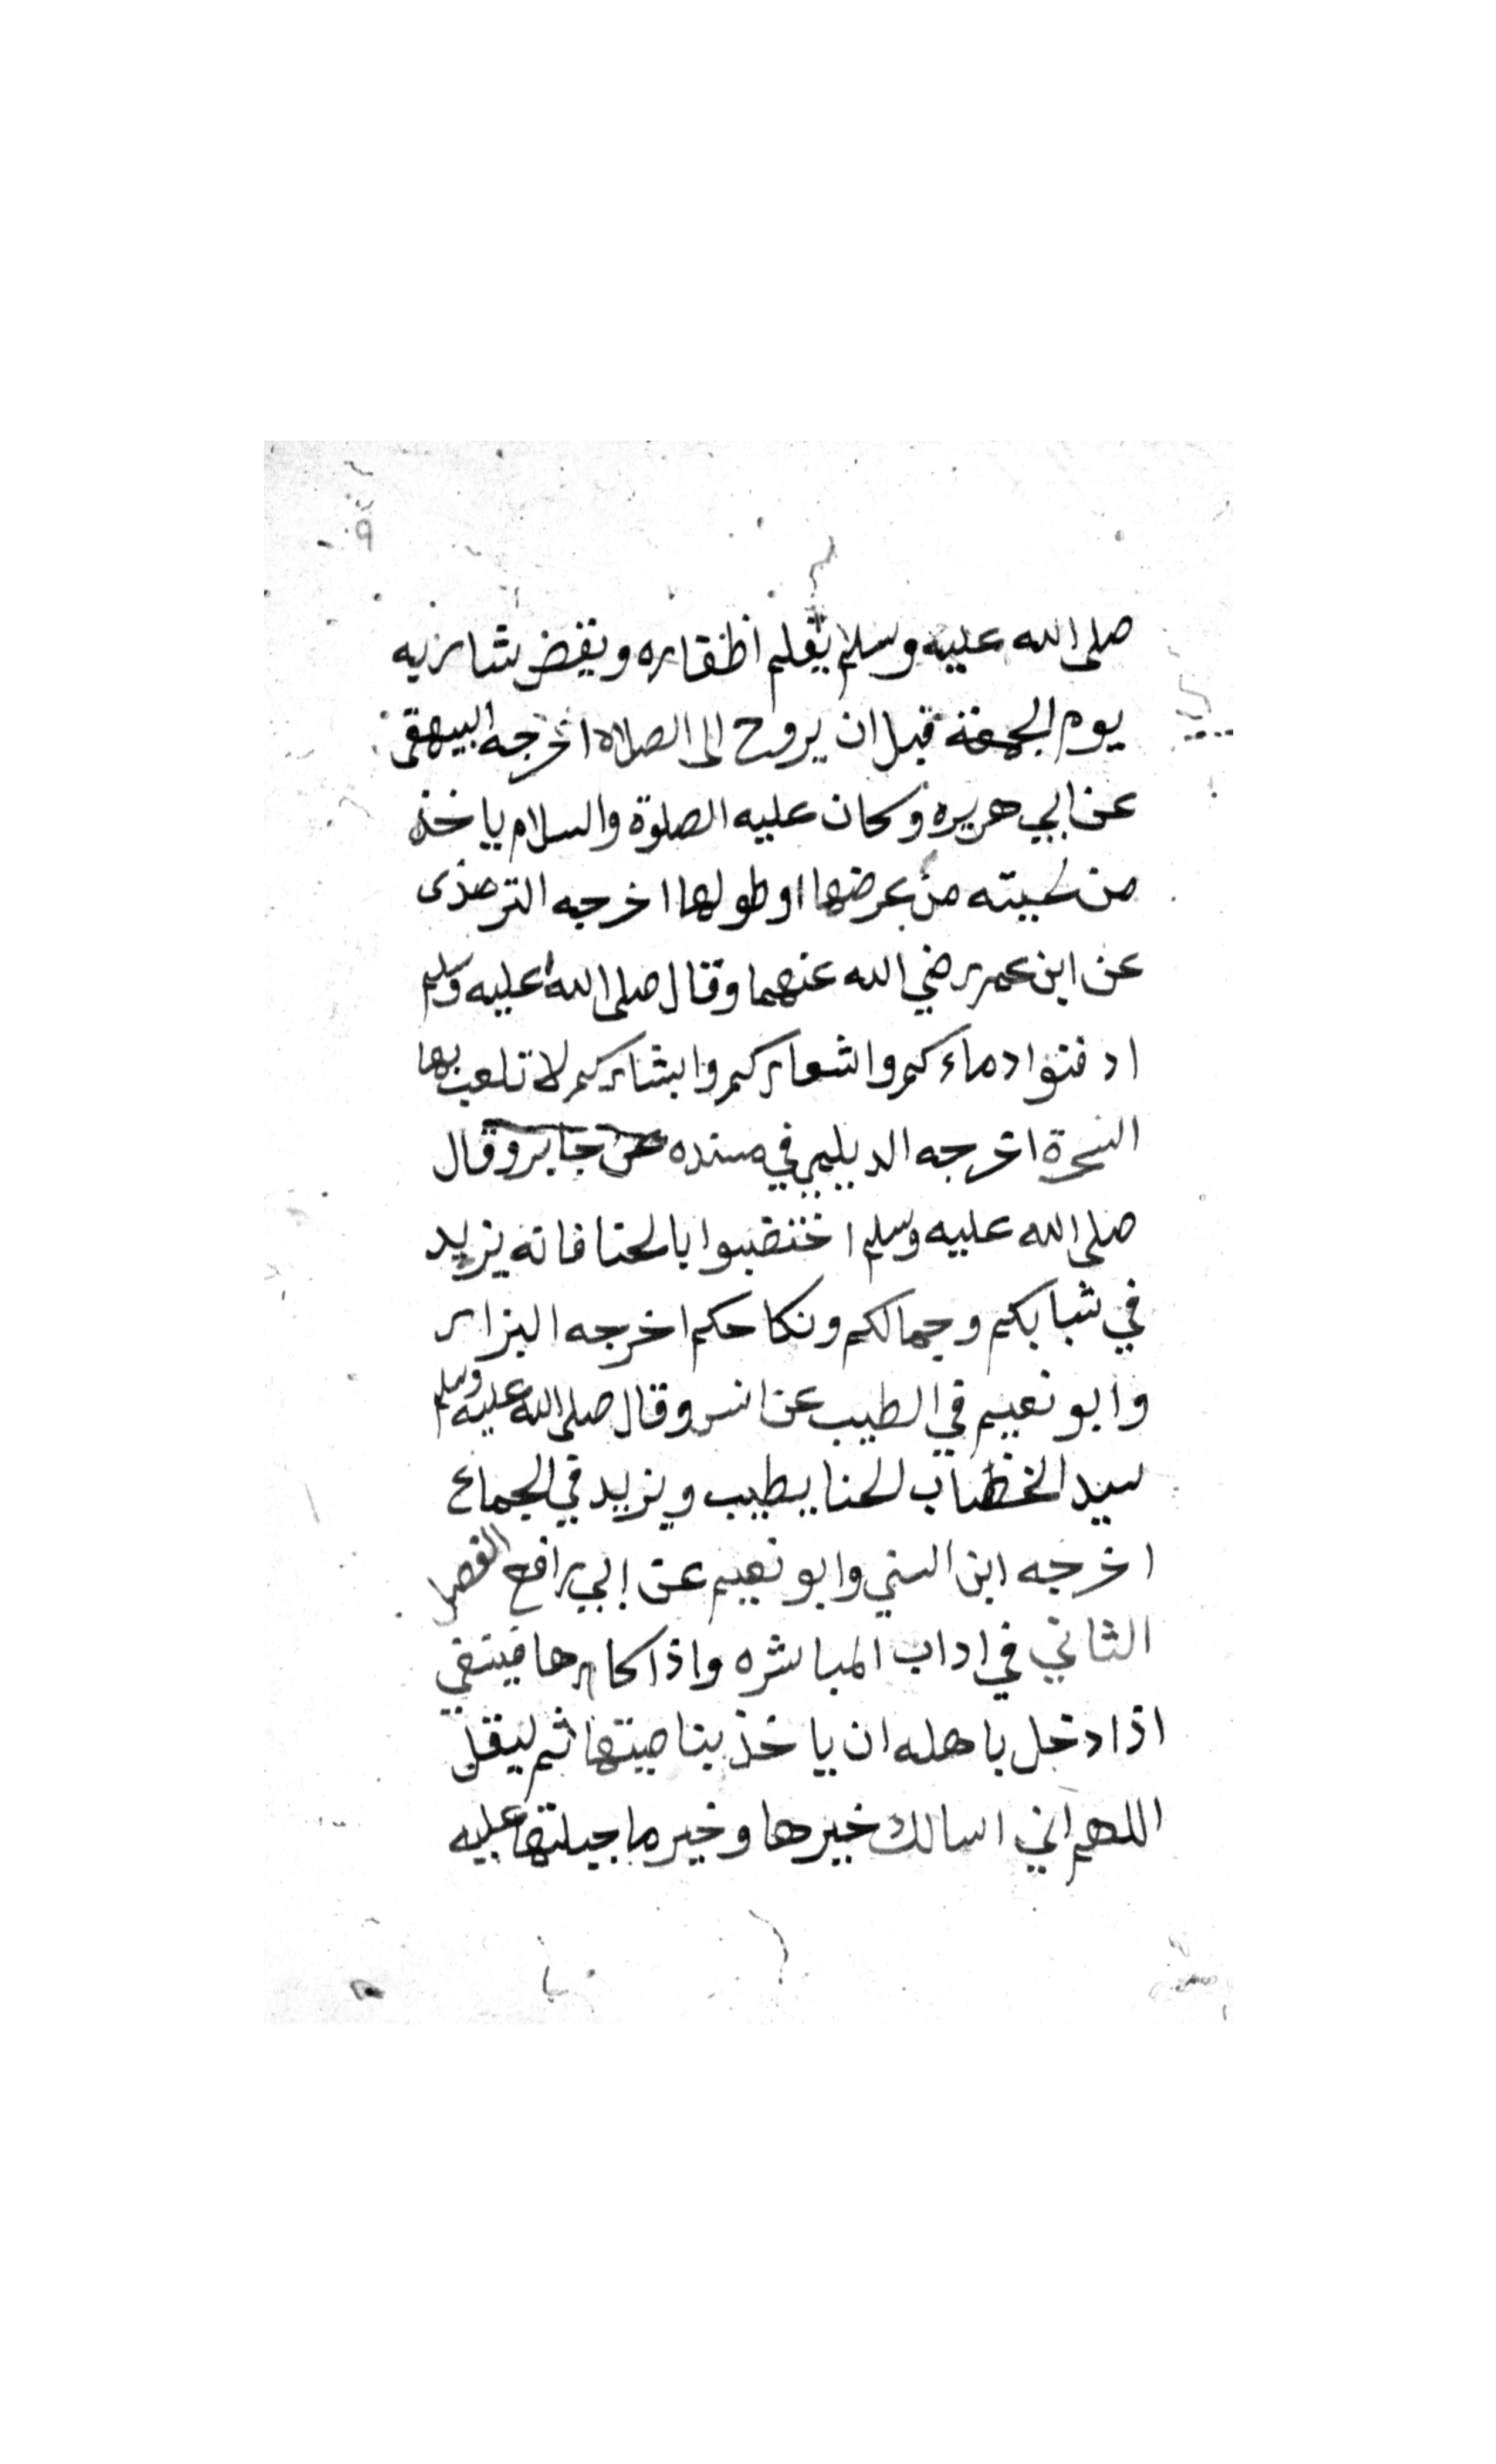 صلى الله عليه وسلم يقلم اظفاره ويقض شاربه
يوم الجمعة قبل ان يروح الى الصلاة اخرجه البيهقى
عن ابي هريره وكان عليه الصلوة والسلام ياخذ
من لحيته من عرضها او طولها اخرجه الترمذى
عن ابن عمر رضي الله عنهما وقال صلى الله عليه وسلم
ادفنوا دماءكم واشعاركم وابشاركم لا تلعب بها
السحرة اخرجه الديلمي في مسنده عن جابر وقال
صلى الله عليه وسلم اختضبوا بالحنا فانه يزيد
في شبابكم وجمالكم ونكاحكم اخرجه البزار
وابو نعيم في الطيب عن انس وقال صلى الله عليه وسلم
سيد الخضاب الحنا يطيب ويزيد في الجماع
اخرجه ابن السني وابو نعيم عن ابي رافع الفصل
الثاني في اداب المباشره واذكارها فينبغي
اذا دخل باهله ان ياخذ بناصيتها ثم ليقل
اللهم اني اسالك خيرها وخير ما جبلتها عليه